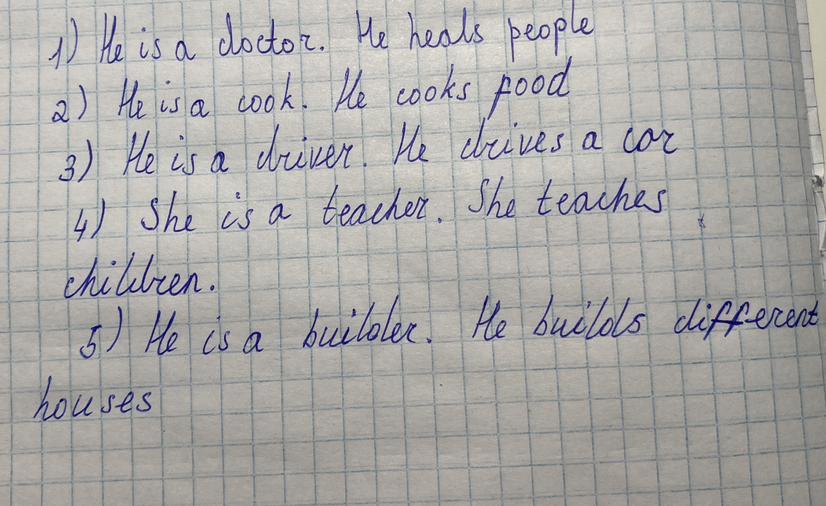 1) He is a doctor. He heals people
2) He is a cook. He cooks food
3) He is a driver. He drives a car
4) She is a teacher. She teaches
children.
5) He is a builder. He builds different
houses